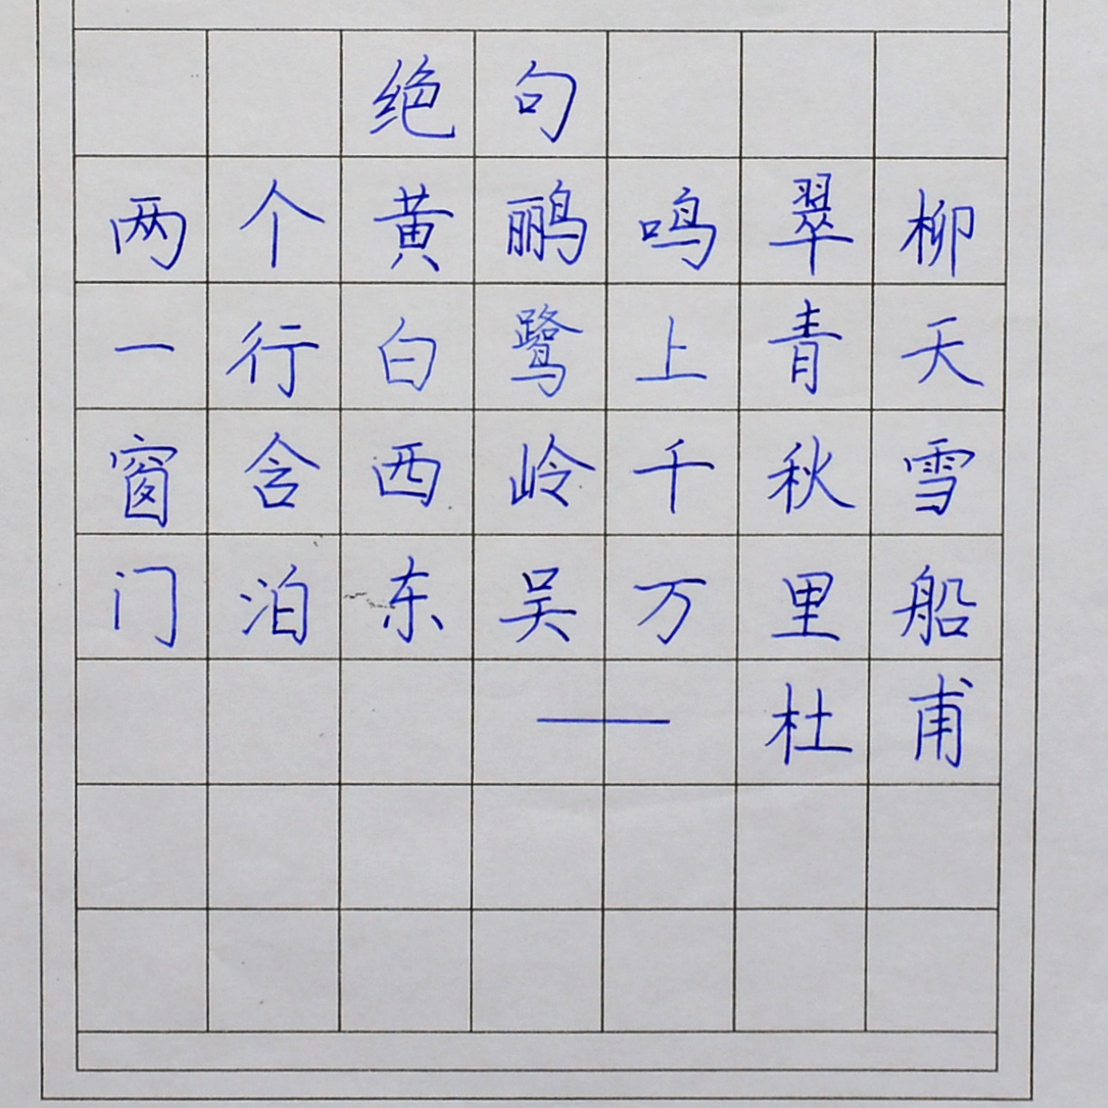 绝句
两个黄鹂鸣翠柳
一行白鹭上青天
窗含西岭千秋雪
门泊东吴万里船
——杜甫